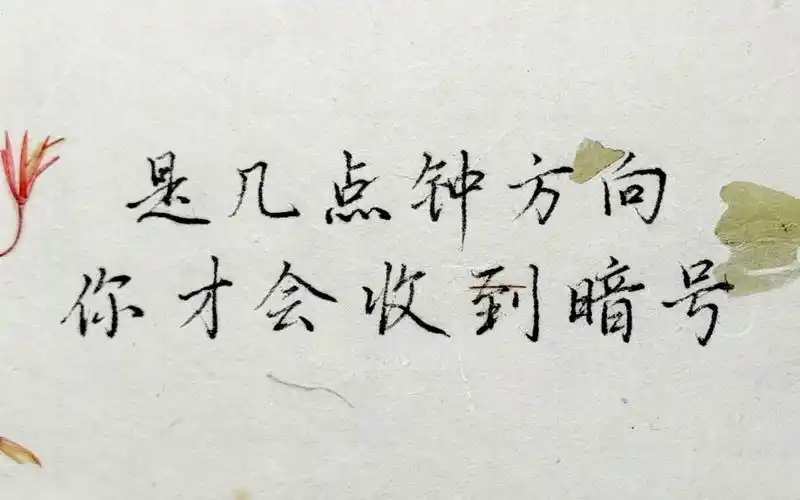 是几点钟方向
你才会收到暗号